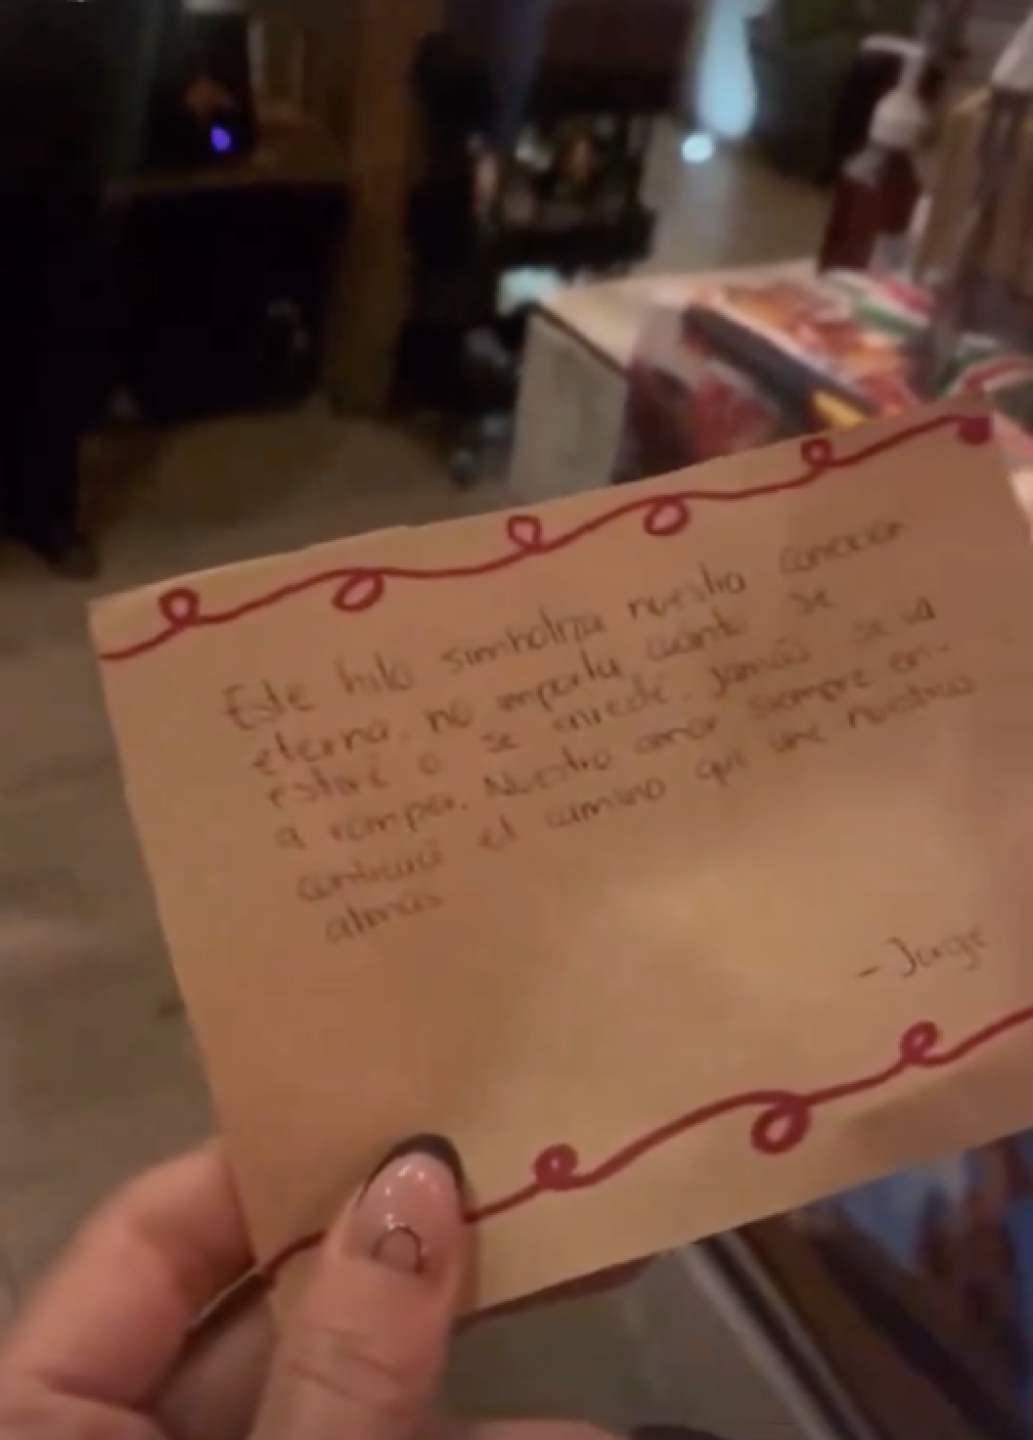 Este hilo simboliza nuestra conexion
eterna, no importa cuanto se
estire o se enrede. Jamás se va
a romper. Nuestro amor siempre en-
contrará el camino que une nuestras
almas
- Jorge